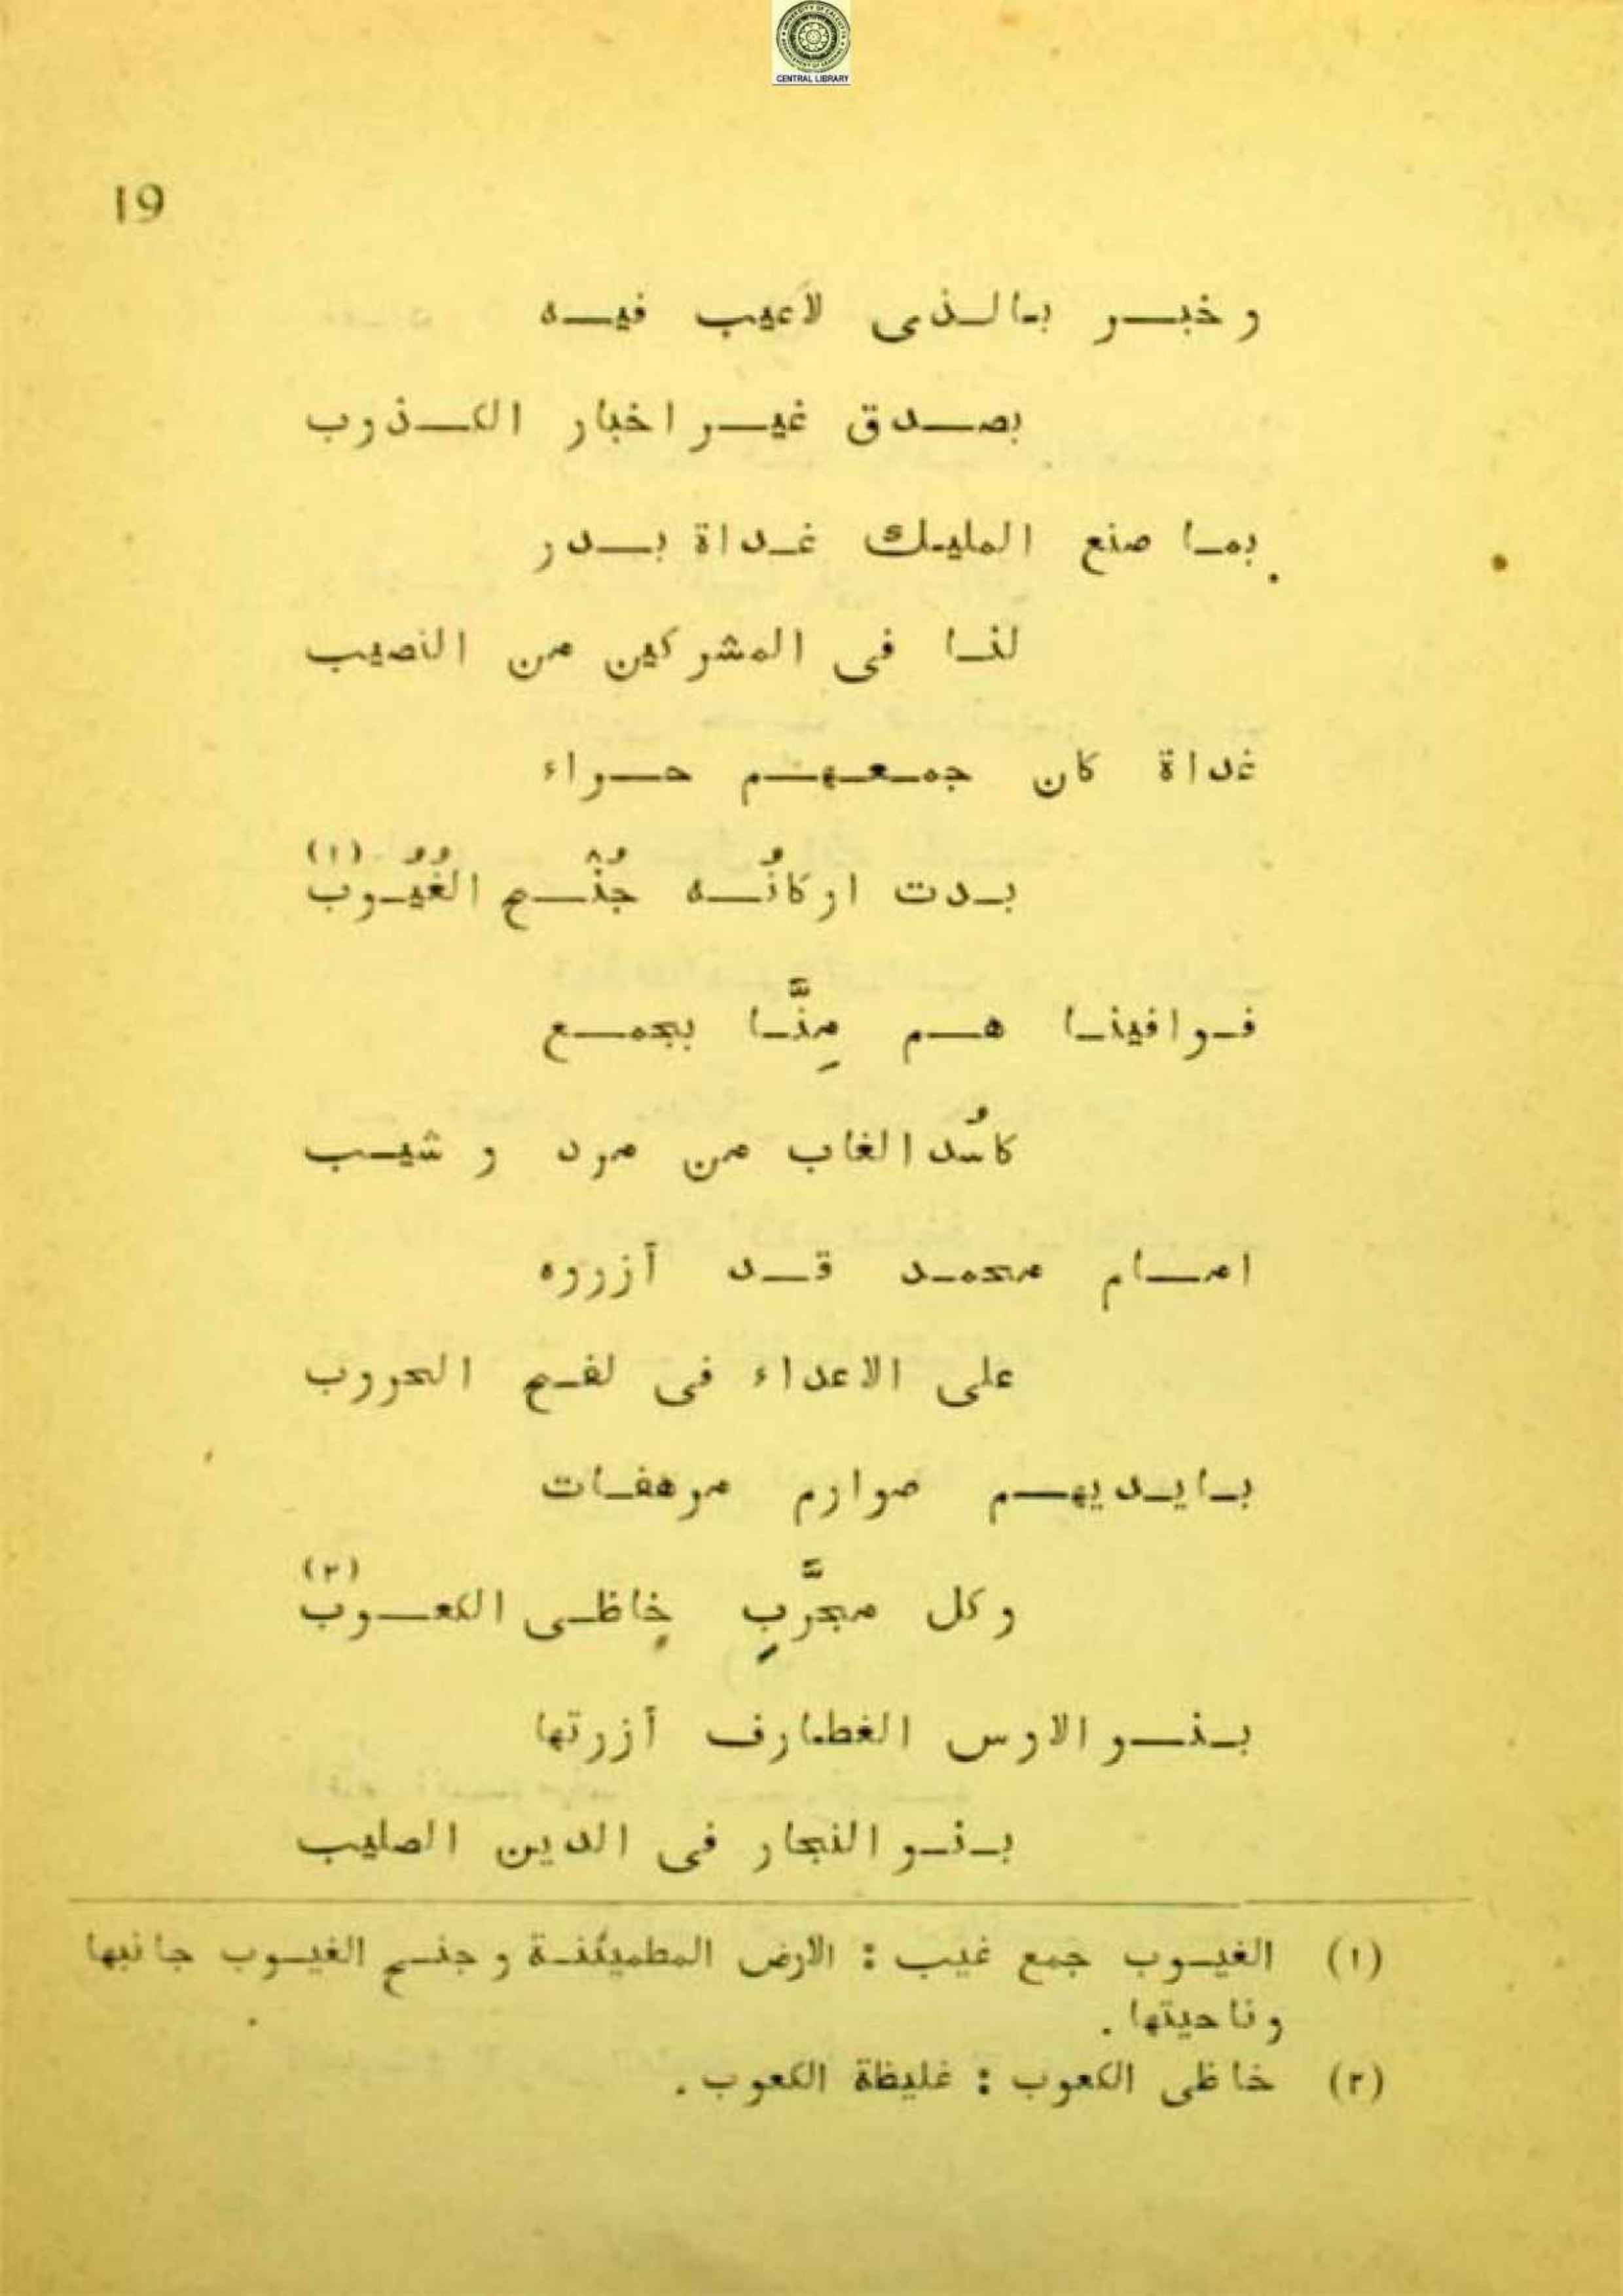 CENTRAL LIBRARY
19
وخبر بالذى لاعيب فيه
بصدق غير اخبار الكذوب
بما صنع المليك غداة بدر
لنا فى المشركين من النصيب
غداة كان جمعهم حراء
بدت اركانُه جُنْح الغُيُوب (١)
فوافينا هم مِنَّا بجمع
كاسُد الغاب من مرد و شيب
امام محمد قد أزروه
على الاعداء فى لفح الحروب
بايديهم صوارم مرهفات
وكل مجرَّبٍ خاظى الكعوب (٢)
بنو الاوس الغطارف أزرتها
بنو النجار فى الدين الصليب
(١) الغيوب جمع غيب : الارض المطميئنة وجنح الغيوب جانبها
وناحيتها .
(٢) خاظى الكعوب : غليظة الكعوب .